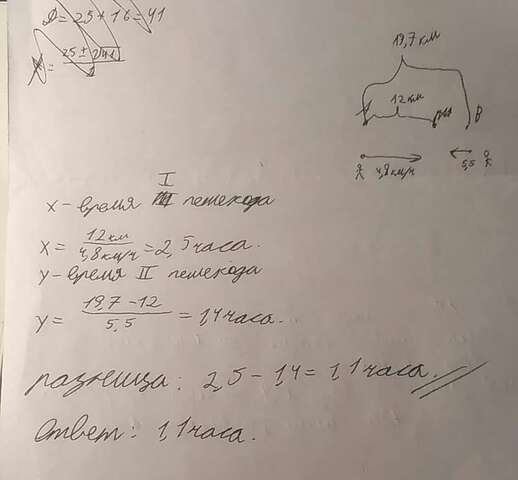 D = 25 + 16 = 41
X = 25 ± 2√41
19,7 км
12 км
B
4,8 км/ч
5,5
I
x – время пешехода
x = 12 км / 4,8 км/ч = 2,5 часа.
y – время II пешехода
y = 19,7 – 12 / 5,5 = 1,4 часа.
разница: 2,5 – 1,4 = 1,1 часа.
Ответ: 1,1 часа.